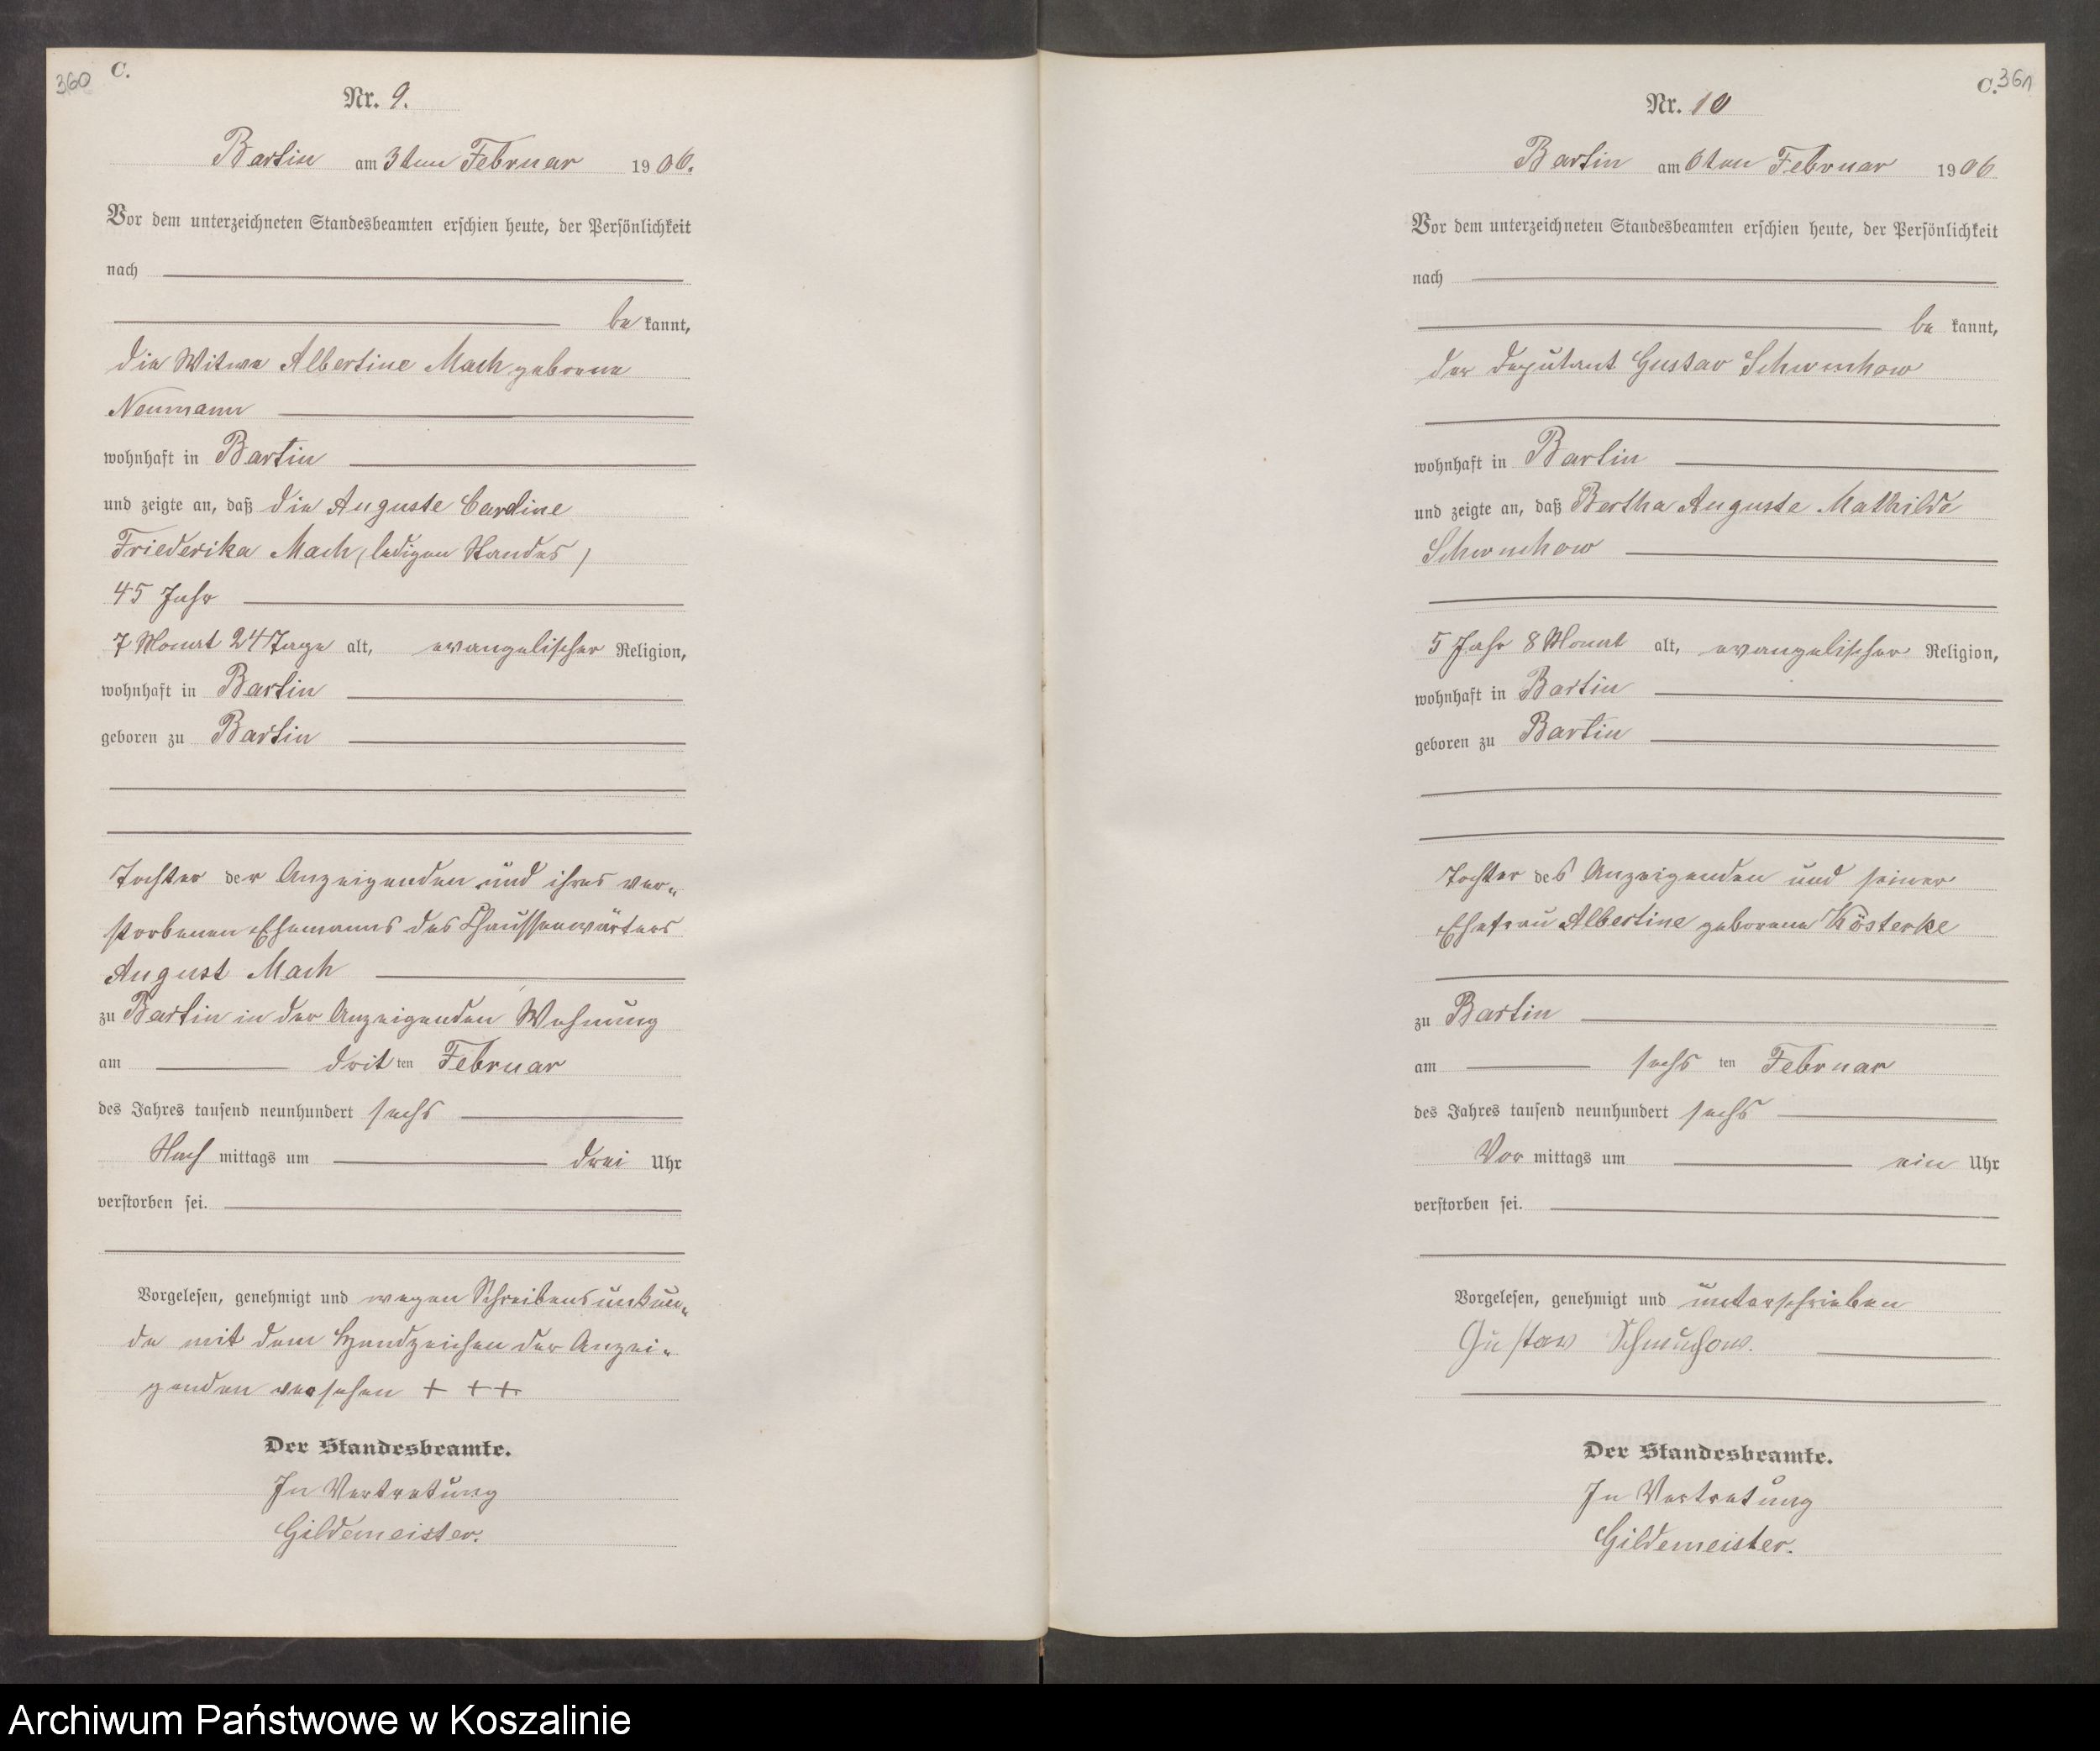 360
C.
Nr. 9.
Bartin am 3ten Februar 1906.
Vor dem unterzeichneten Standesbeamten erschien heute, der Persönlichkeit
nach
be kannt,
die Witwe Albertine Mach geborene
Neumann
wohnhaft in Bartin
und zeigte an, daß die Auguste Caroline
Friederika Mach, (ledigen Standes)
45 Jahr
7 Monat 24 Tage alt, evangelischer Religion,
wohnhaft in Bartin
geboren zu Bartin
Tochter der Anzeigenden und ihres ver-
storbenen Ehemanns des Chausseewärters
August Mach
zu Bartin in der Anzeigenden Wohnung
am dritten Februar
des Jahres tausend neunhundert sechs
Nach mittags um drei Uhr
verstorben sei.
Vorgelesen, genehmigt und wegen Schreibensunkun-
de mit dem Handzeichen der Anzei-
genden versehen + + +
Der Standesbeamte.
In Vertretung
Gildemeister.
C. 361
Nr. 10
Bartin am 6ten Februar 1906
Vor dem unterzeichneten Standesbeamten erschien heute, der Persönlichkeit
nach
be kannt,
der Deputant Gustav Schwuchow
wohnhaft in Bartin
und zeigte an, daß Bertha Auguste Mathilde
Schwuchow
5 Jahr 8 Monat alt, evangelischer Religion,
wohnhaft in Bartin
geboren zu Bartin
Tochter des Anzeigenden und seiner
Ehefrau Albertine geborene Kösterke
zu Bartin
am sechs ten Februar
des Jahres tausend neunhundert sechs
Vor mittags um ein Uhr
verstorben sei.
Vorgelesen, genehmigt und unterschrieben
Gustav Schwuchow.
Der Standesbeamte.
In Vertretung
Gildemeister.
Archiwum Państwowe w Koszalinie